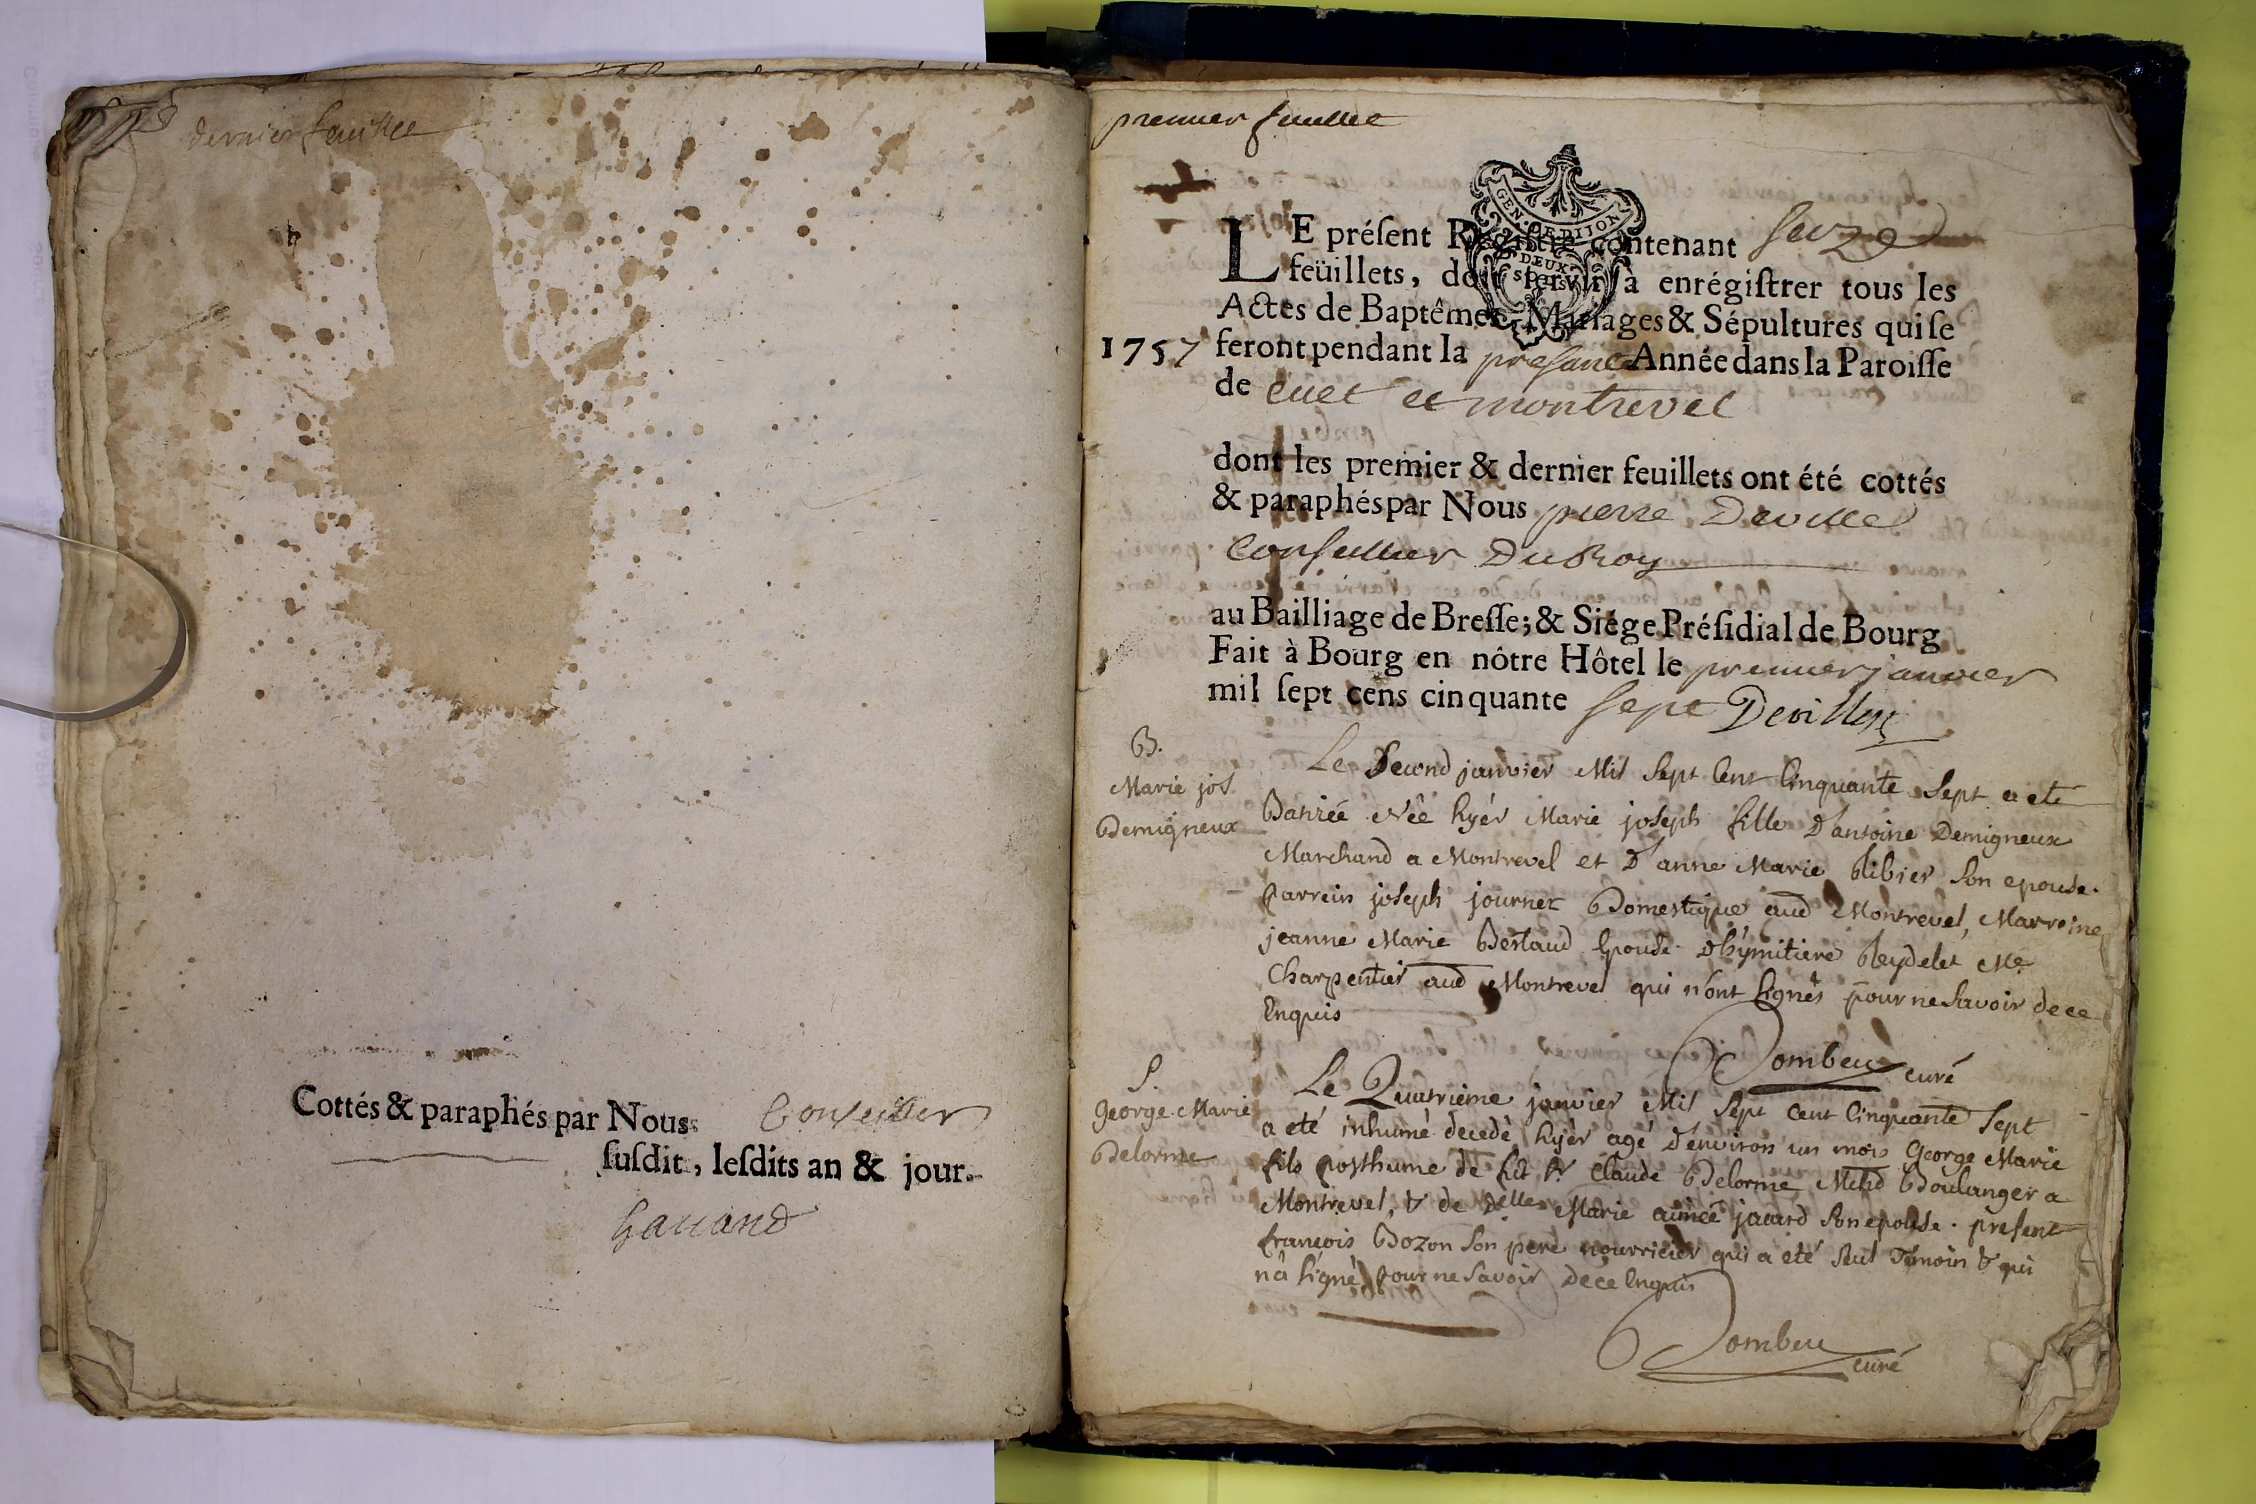 dernier feuillet
Cottés & paraphés par Nous Conseiller
susdit, lesdits an & jour.
premier feuillet
GEN. DE DIJON
DEUX
SOLS
LE présent Registre contenant seize
feüillets, doit servir à enrégistrer tous les
Actes de Baptêmes, Mariages & Sépultures qui se
1757 feront pendant la presante Année dans la Paroisse
de Cuet et montrevel
dont les premier & dernier feuillets ont été cottés
& paraphés par Nous pierre Deville
Conseiller Du Roy
au Bailliage de Bresse; & Siége Présidial de Bourg
Fait à Bourg en nôtre Hôtel le premier janvier
mil sept cens cinquante sept
B.
Marie jos.
Demigneux
Le Second janvier Mil Sept Cent Cinquante Sept a eté
Batizée Née hyér Marie joseph fille d'antoine Demigneux
Marchand a Montrevel et d'anne Marie Son epouse.
Parrein joseph journet Domestique aud Montrevel, Marreine
jeanne Marie Epouse Me
Charpentier aud Montrevel qui n'ont signés pour ne Savoir de ce
Enquis
Dombeu curé
S.
George Marie
Delorme
Le Quatrieme janvier Mil Sept Cent Cinquante Sept
a eté inhumé decedé hyér agé d'environ un mois George Marie
fils posthume de Sr Claude Delorme Mtre Boulanger a
Montrevel, & de Delle Marie aimée jauard Son epouse. present
françois Bozon Son pere nourricier qui a eté Seul Témoin & qui
n'a signé pour ne Savoir de ce Enquis
Dombeu
curé